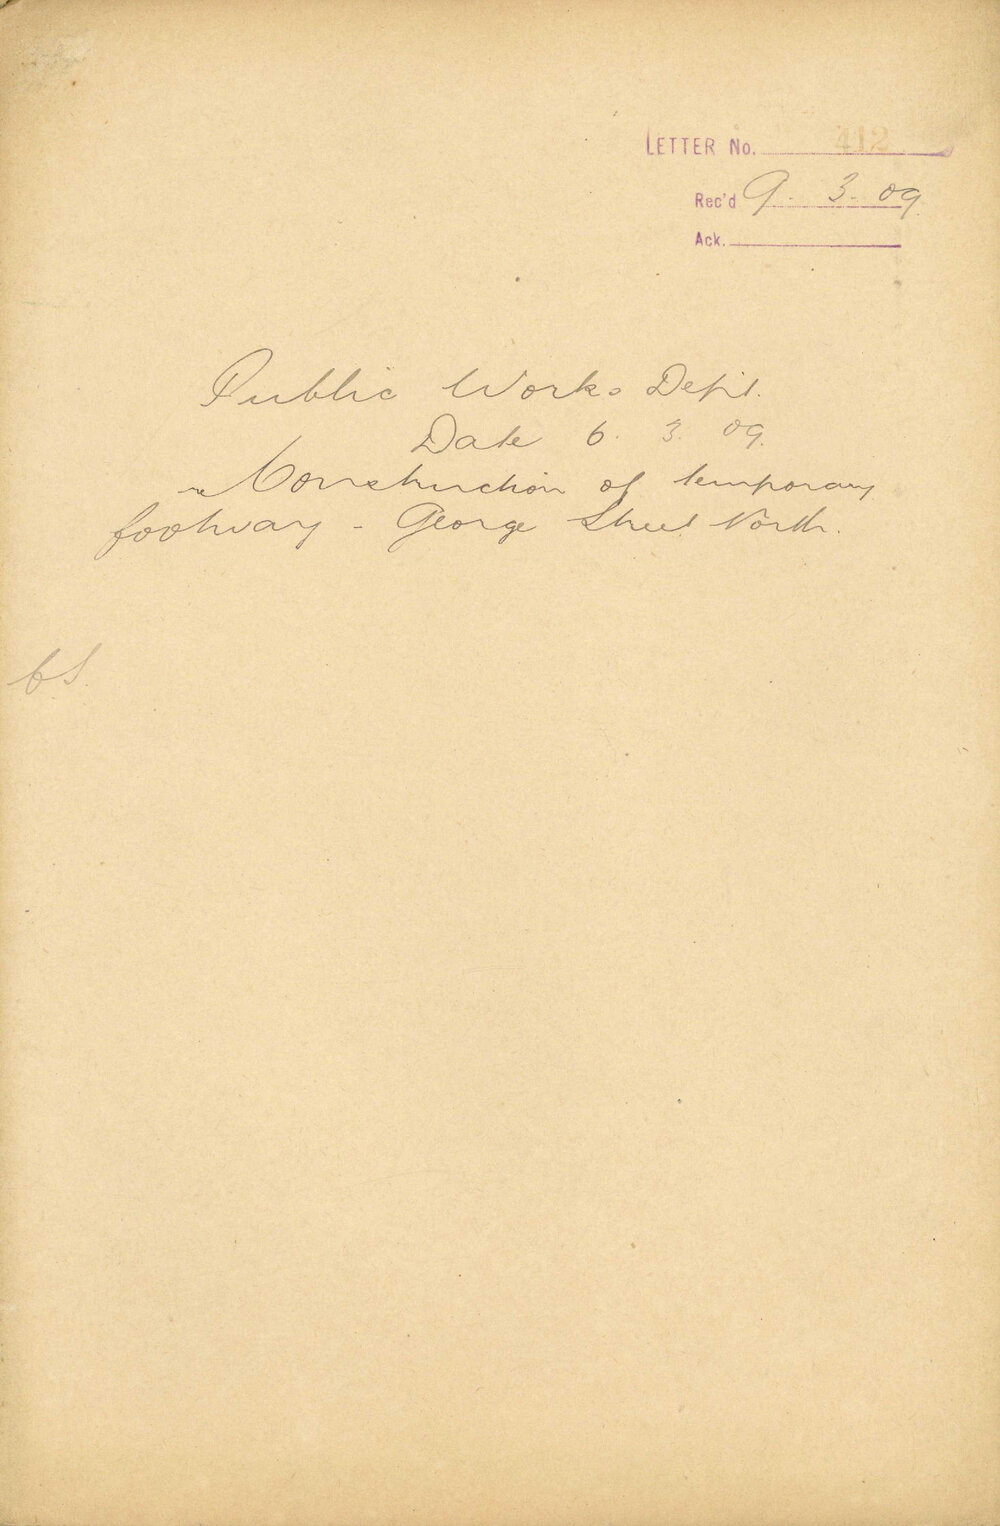 LETTER No. 412
Rec'd 9. 3. 09.
Ack.
Public Works Dept.
Date 6. 3. 09.
re Construction of temporary
footway - George Street North.